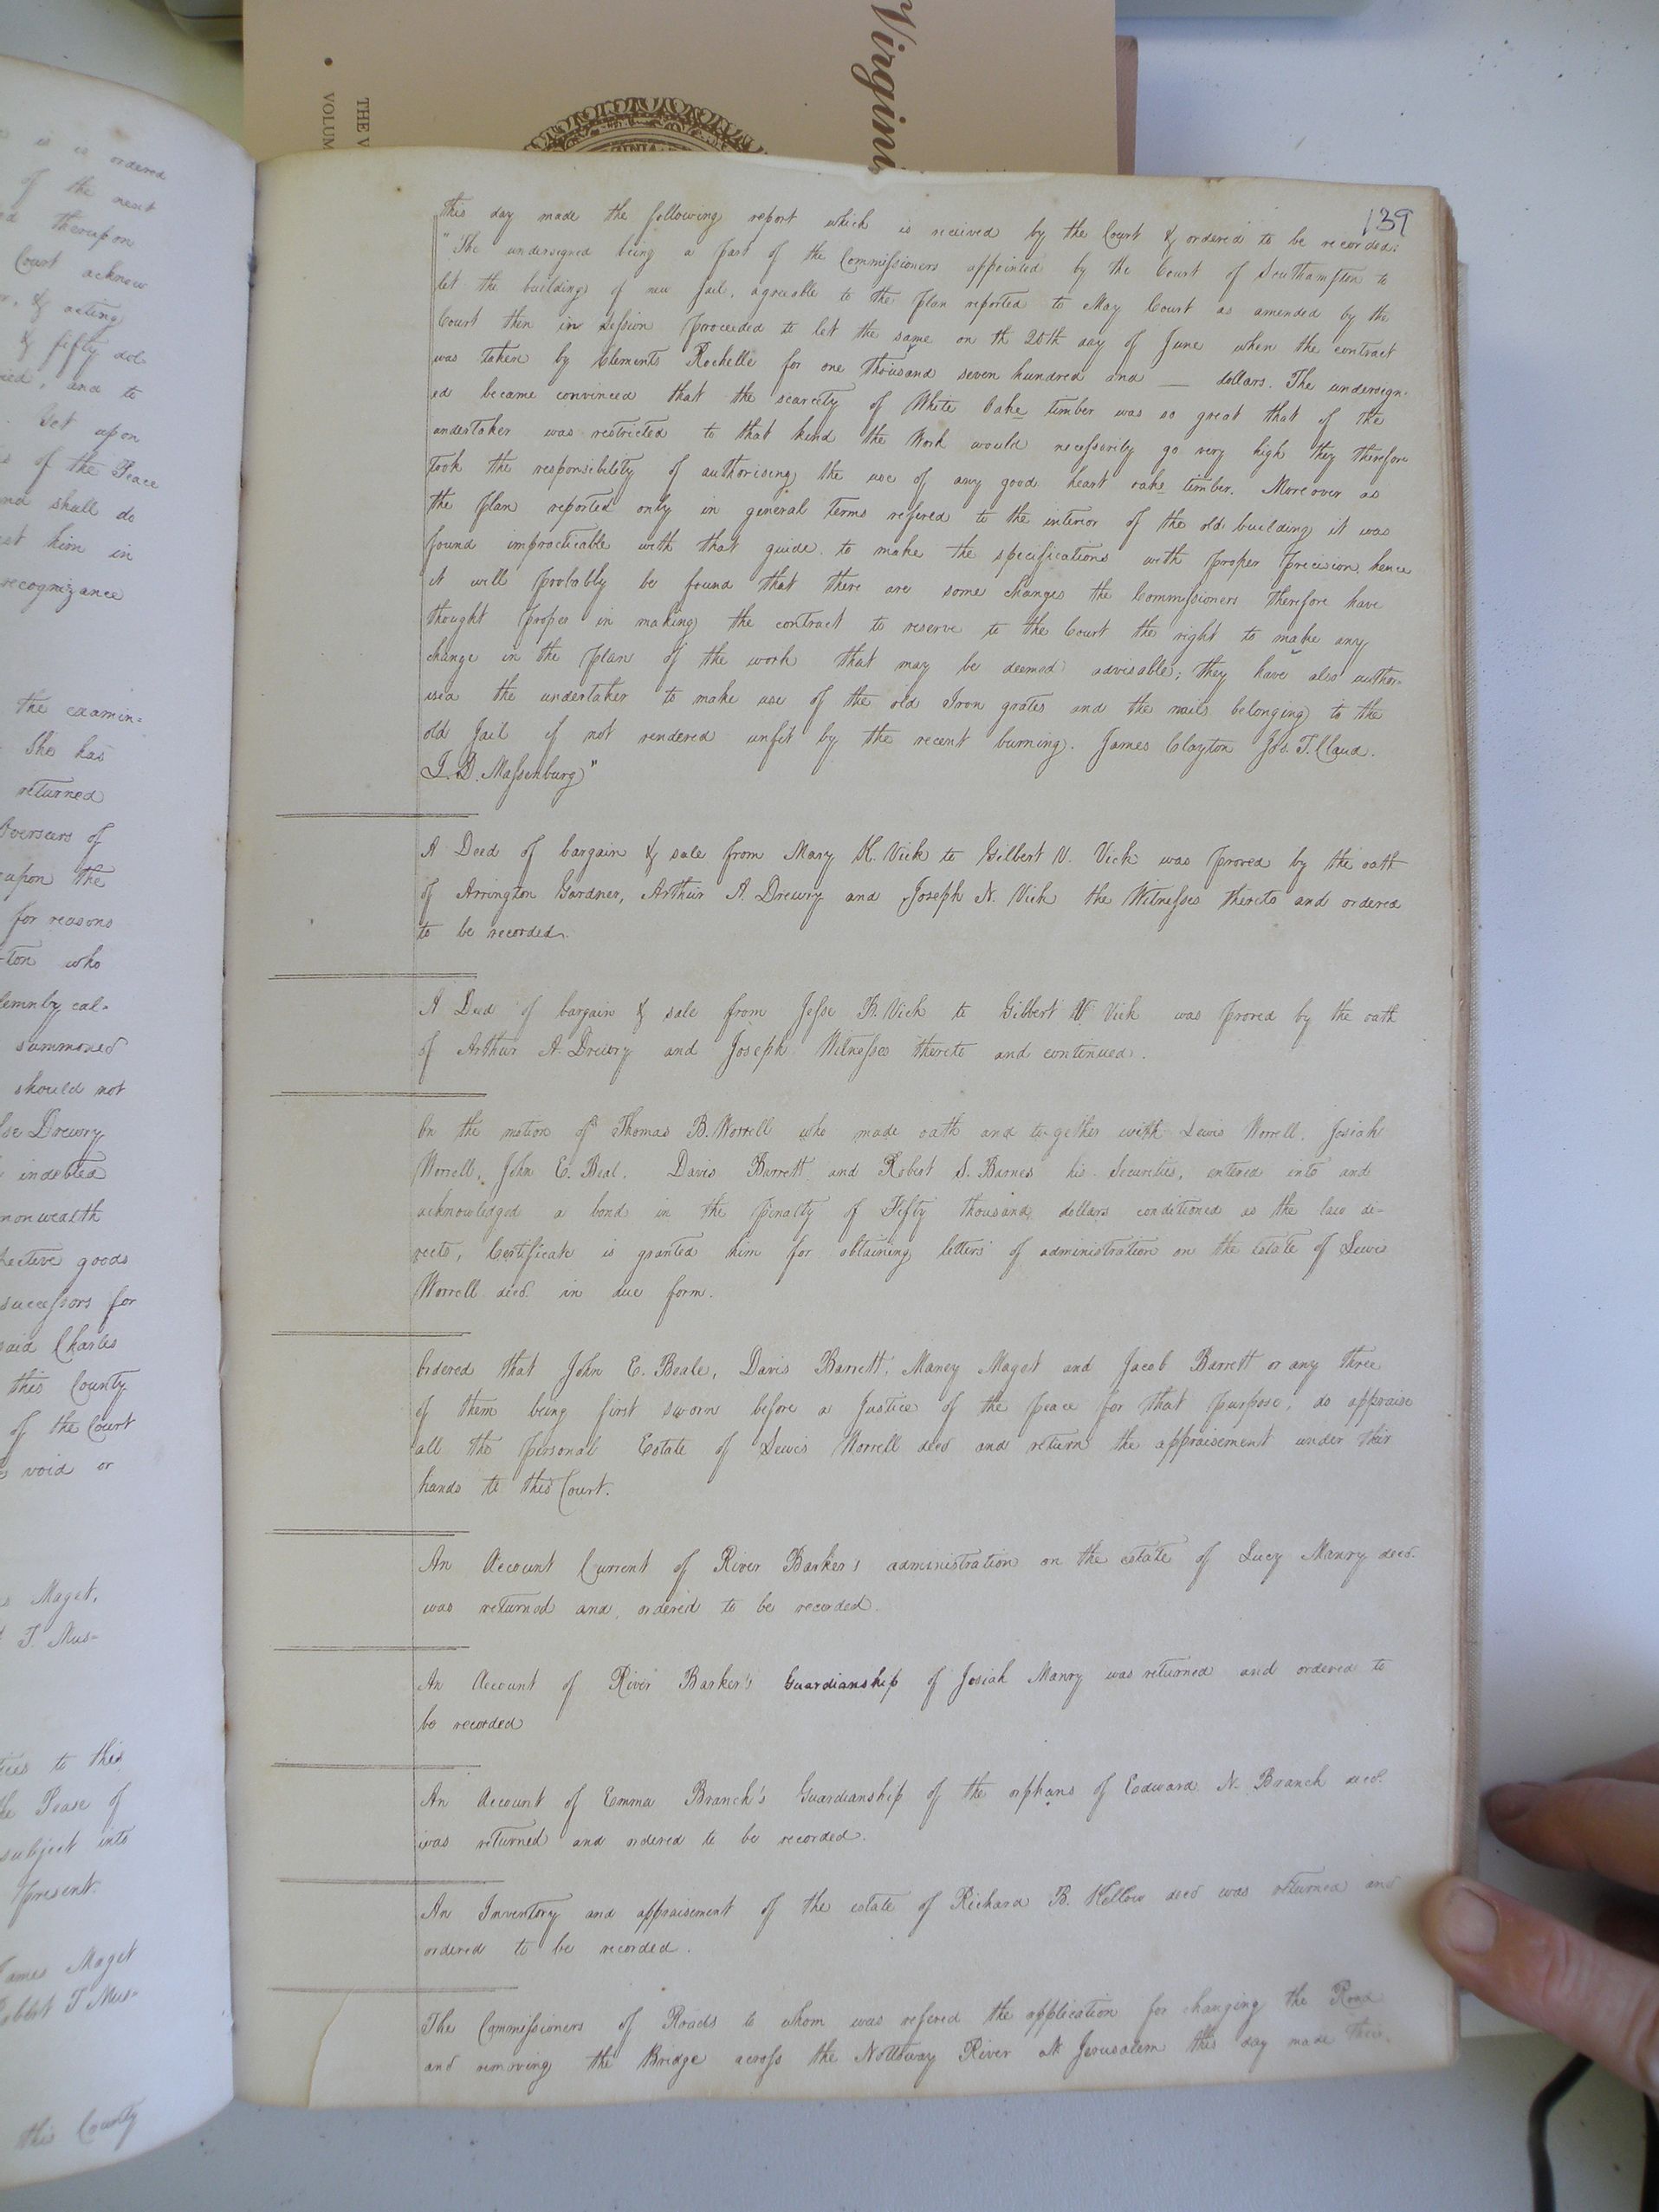 Virgini
THE V
VOLUM
139
this day made the following report which is received by the Court & ordered to be recorded:
"The undersigned being a part of the Commissioners appointed by the Court of Southampton to
let the building of new Jail, agreeable to the plan reported to May Court as amended by the
Court then in session proceeded to let the same on th 20th day of June when the contract
was taken by Clements Rochelle for one thousand seven hundred and — dollars. The undersign-
ed became convinced that the scarcity of White Oake timber was so great that if the
undertaker was restricted to that kind the Work would necessarily go very high they therefore
took the responsibility of authorising the use of any good heart oake timber. Moreover as
the plan reported only in general terms refered to the interior of the old building it was
found impracticable with that guide to make the specifications with proper precision, hence
it will probably be found that there are some changes the Commissioners therefore have
thought proper in making the contract to reserve to the Court the right to make any
change in the plan of the work that may be deemed advisable; they have also author-
ised the undertaker to make use of the old Iron grates and the nails belonging to the
old Jail if not rendered unfit by the recent burning. James Clayton Jos. T. Claud.
J. D. Massenburg"
A Deed of bargain & sale from Mary K. Vick to Gilbert W. Vick was proved by the oath
of Arrington Gardner, Arthur A. Drewry and Joseph N. Vick the Witnesses thereto and ordered
to be recorded.
A Deed of bargain & sale from Jesse B. Vick to Gilbert W Vick was proved by the oath
of Arthur A. Drewry and Joseph Witnesses thereto and continued.
On the motion of Thomas B. Worrell who made oath and together with Lewis Worrell, Josiah
Worrell, John E. Beal, Davis Barrett and Robert S. Barnes his Securities, entered into and
acknowledged a bond in the penalty of Fifty thousand dollars conditioned as the law di-
rects, Certificate is granted him for obtaining letters of administration on the estate of Lewis
Worrell decd. in due form.
Ordered that John E. Beale, Davis Barrett, Maney Maget and Jacob Barrett or any three
of them being first sworn before a Justice of the peace for that purpose, do appraise
all the personal Estate of Lewis Worrell decd and return the appraisement under their
hands to this Court.
An Account Current of River Barker's administration on the estate of Lucy Manry decd.
was returned and ordered to be recorded.
An Account of River Barker's Guardianship of Josiah Manry was returned and ordered to
be recorded
An Account of Emma Branch's Guardianship of the orphans of Eodward N. Branch decd.
was returned and ordered to be recorded.
An Inventory and appraisement of the estate of Richard B. Kellow decd was returned and
ordered to be recorded.
The Commissioners of Roads to whom was refered the application for changing the Road
and removing the Bridge across the Nottoway River at Jerusalem this day made their
ordered
of the next
thereupon
Court acknow
& acting
& fifty dol
and to
Set upon
of the Peace
shall do
him in
recognizance
the examin=
She has
returned
Overseers of
upon the
for reasons
ton who
lemnly cal-
summoned
should not
Drewry
indebted
monwealth
goods
successors for
said Charles
this County
of the Court
void or
Maget,
T. Mus=
to this
the Peace of
subject into
present.
James Maget
T Mus=
this County